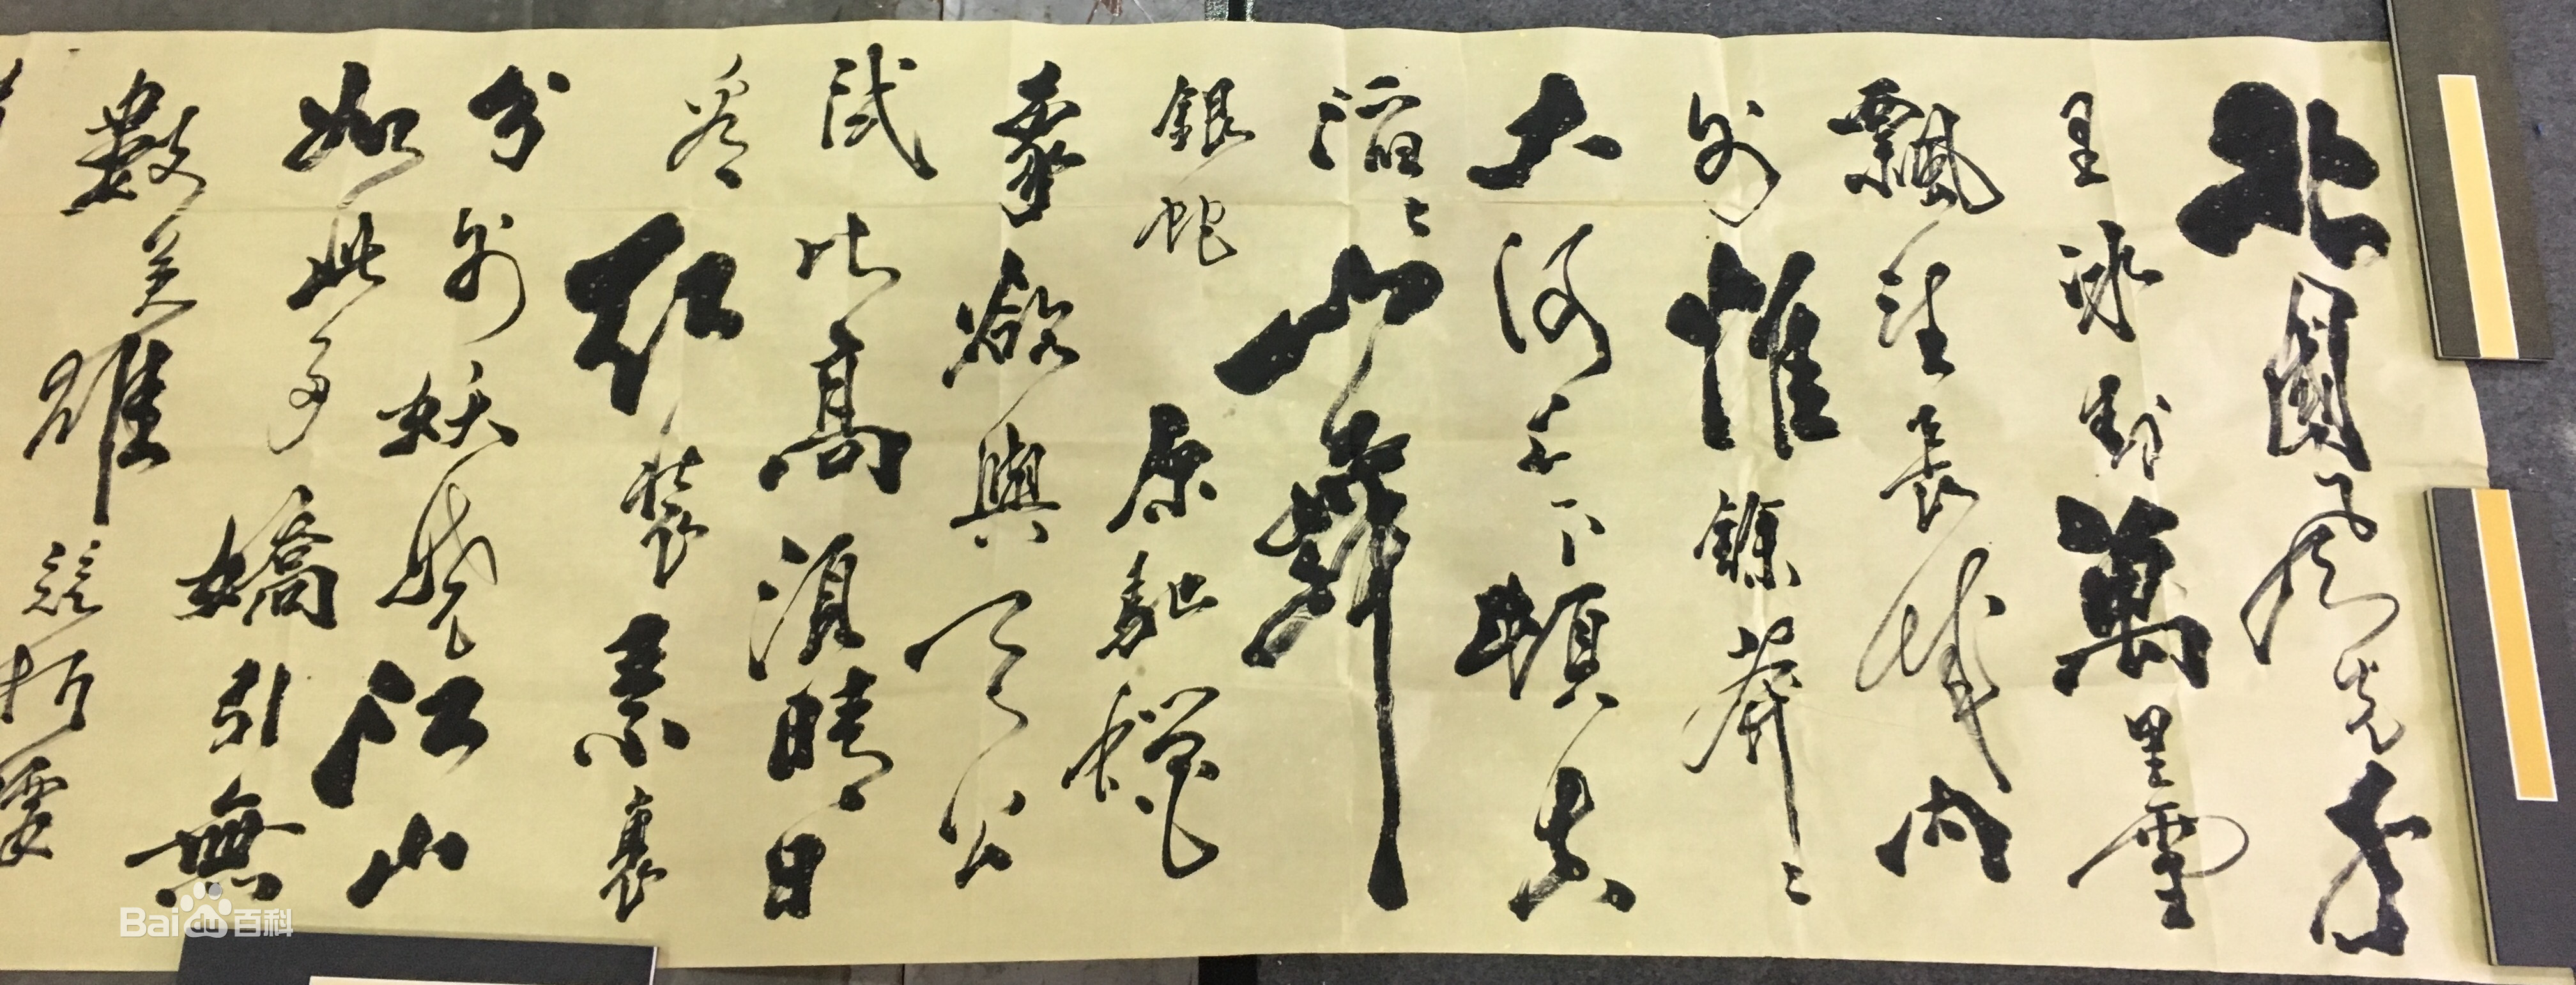 北國風光千
里冰封萬里雪
飄望長城內
外惟餘莽々
大河上下頓失
滔々山舞
銀蛇原馳蠟
象欲與天公
試比高須晴日
看紅裝素裹
分外妖嬈江山
如此多嬌引無
數英雄競折腰
Baidu百科